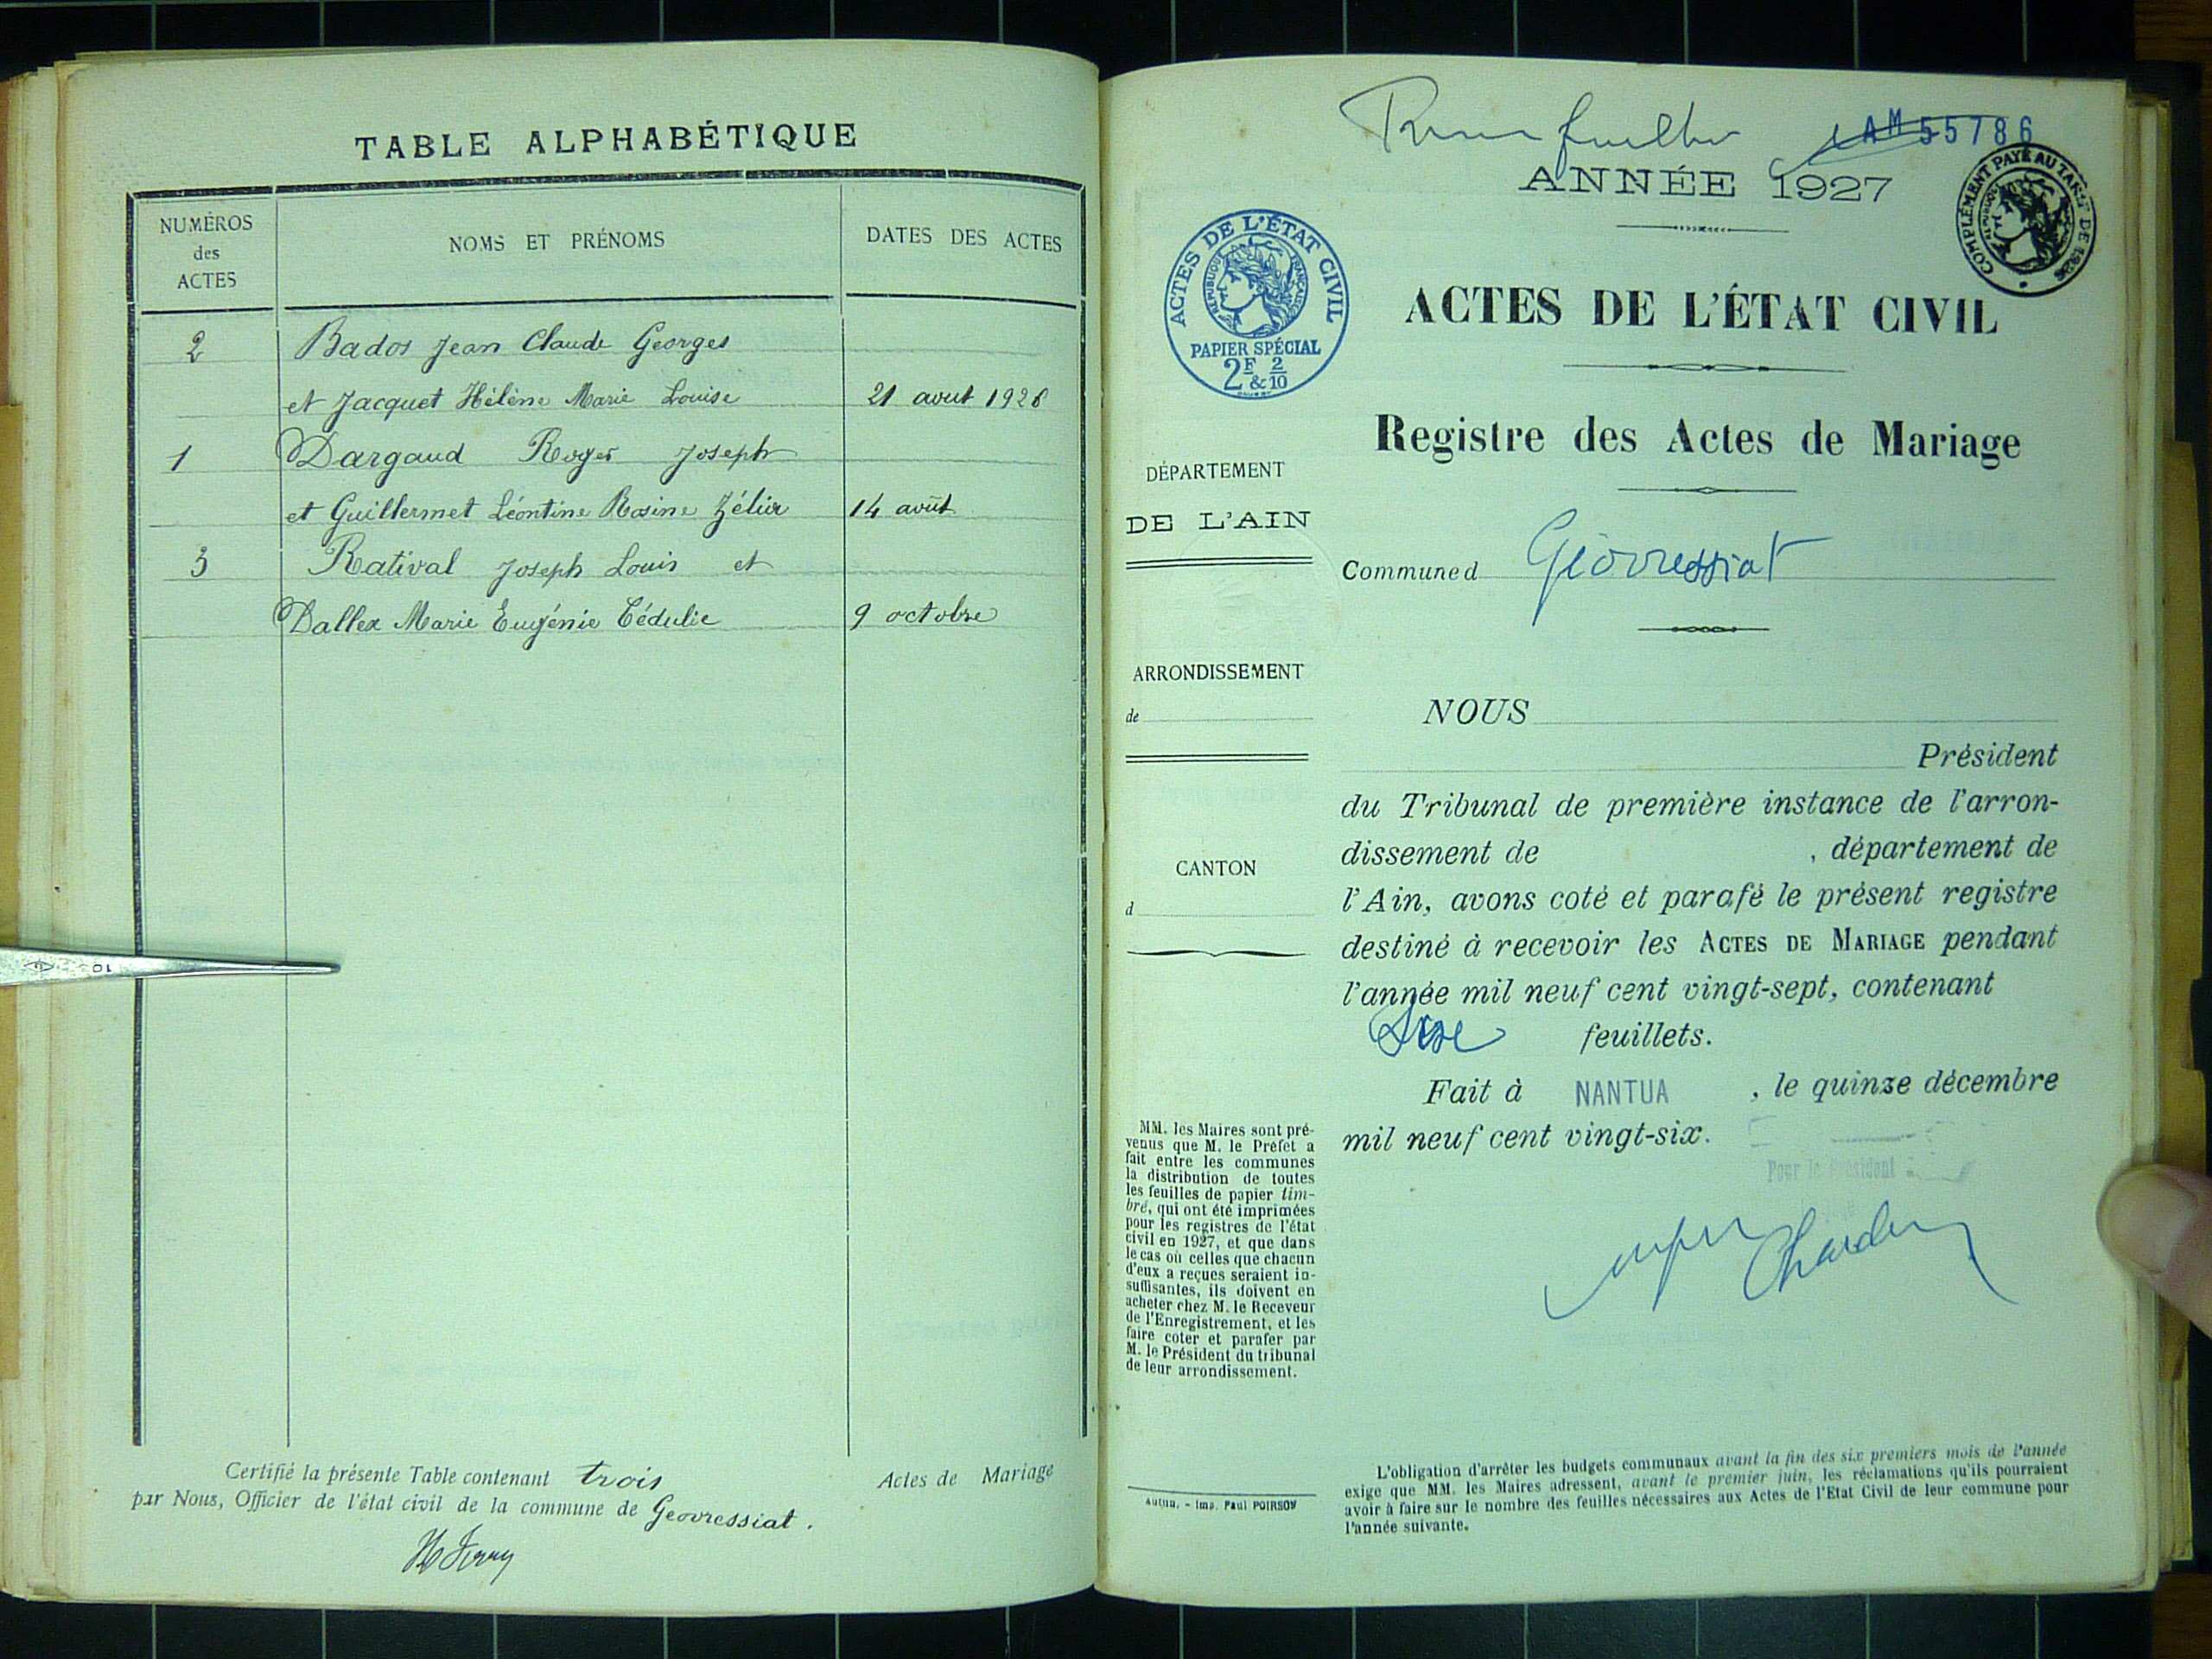 TABLE ALPHABÉTIQUE
NUMÉROS
des
ACTES
NOMS ET PRÉNOMS
DATES DES ACTES
2
Bados Jean Claude Georges
et Jacquet Hélène Marie Louise
21 aout 1926
1
Dargaud Roger Joseph
et Guillermet Léontine Rosine Zélia
14 août
3
Ratival Joseph Louis et
Dallex Marie Eugénie Cédulie
9 octobre
Certifié la présente Table contenant trois
Actes de Mariage
par Nous, Officier de l'état civil de la commune de Geovressiat.
AM 55786
ANNÉE 1927
ACTES DE L'ÉTAT CIVIL
RÉPUBLIQUE FRANÇAISE
PAPIER SPÉCIAL
2F & 2/10
COMPLÉMENT PAYÉ AU TARIF DE 1926
ACTES DE L'ÉTAT CIVIL
Registre des Actes de Mariage
DÉPARTEMENT
DE L'AIN
Commune d Géovressiat
ARRONDISSEMENT
de
CANTON
d
MM. les Maires sont pré-
venus que M. le Préfet a
fait entre les communes
la distribution de toutes
les feuilles de papier tim-
bré, qui ont été imprimées
pour les registres de l'état
civil en 1927, et que dans
le cas où celles que chacun
d'eux a reçues seraient in-
suffisantes, ils doivent en
acheter chez M. le Receveur
de l'Enregistrement, et les
faire coter et parafer par
M. le Président du tribunal
de leur arrondissement.
Autun. - Imp. Paul POIRSON
NOUS
Président
du Tribunal de première instance de l'arron-
dissement de , département de
l'Ain, avons coté et parafé le présent registre
destiné à recevoir les ACTES DE MARIAGE pendant
l'année mil neuf cent vingt-sept, contenant
feuillets.
Fait à NANTUA , le quinze décembre
mil neuf cent vingt-six.
Pour le Président
L'obligation d'arrêter les budgets communaux avant la fin des six premiers mois de l'année
exige que MM. les Maires adressent, avant le premier juin, les réclamations qu'ils pourraient
avoir à faire sur le nombre des feuilles nécessaires aux Actes de l'Etat Civil de leur commune pour
l'année suivante.